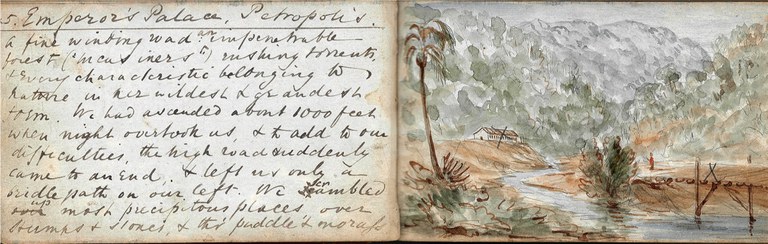 5. Emperor's Palace, Petropolis.
A fine winding road an impenetrable
forest, rushing torrents,
& every characteristic belonging to
Nature in her wildest & grandest
form. We had ascended about 1000 feet
when night overtook us, & to add to our
difficulties, the high road suddenly
came to an end, & left us only a
bridle path on our left. We scrambled
up most precipitous places, over
stumps & stones, & thro' puddle & morass